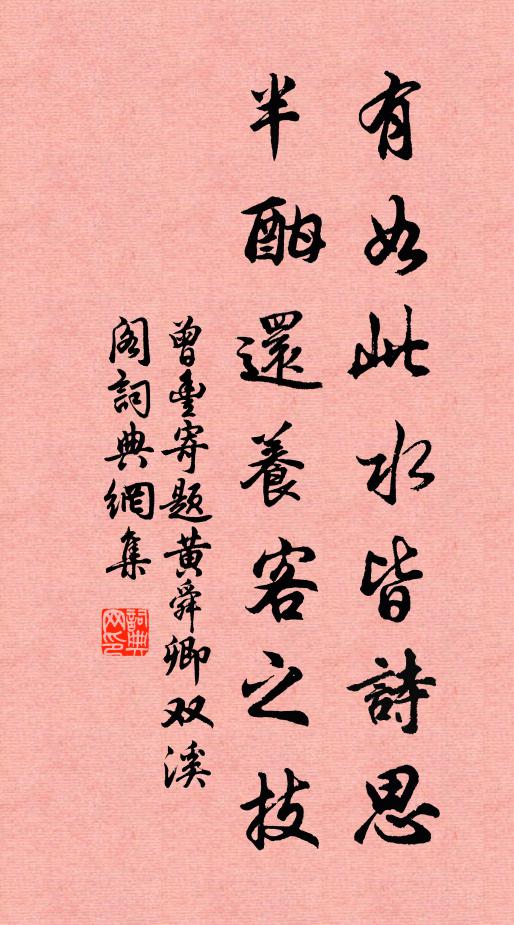 有如此水皆詩思
半酣還養客之技
曾豐寄题黄舜卿双溪
阁詞典網集
詞典
网印